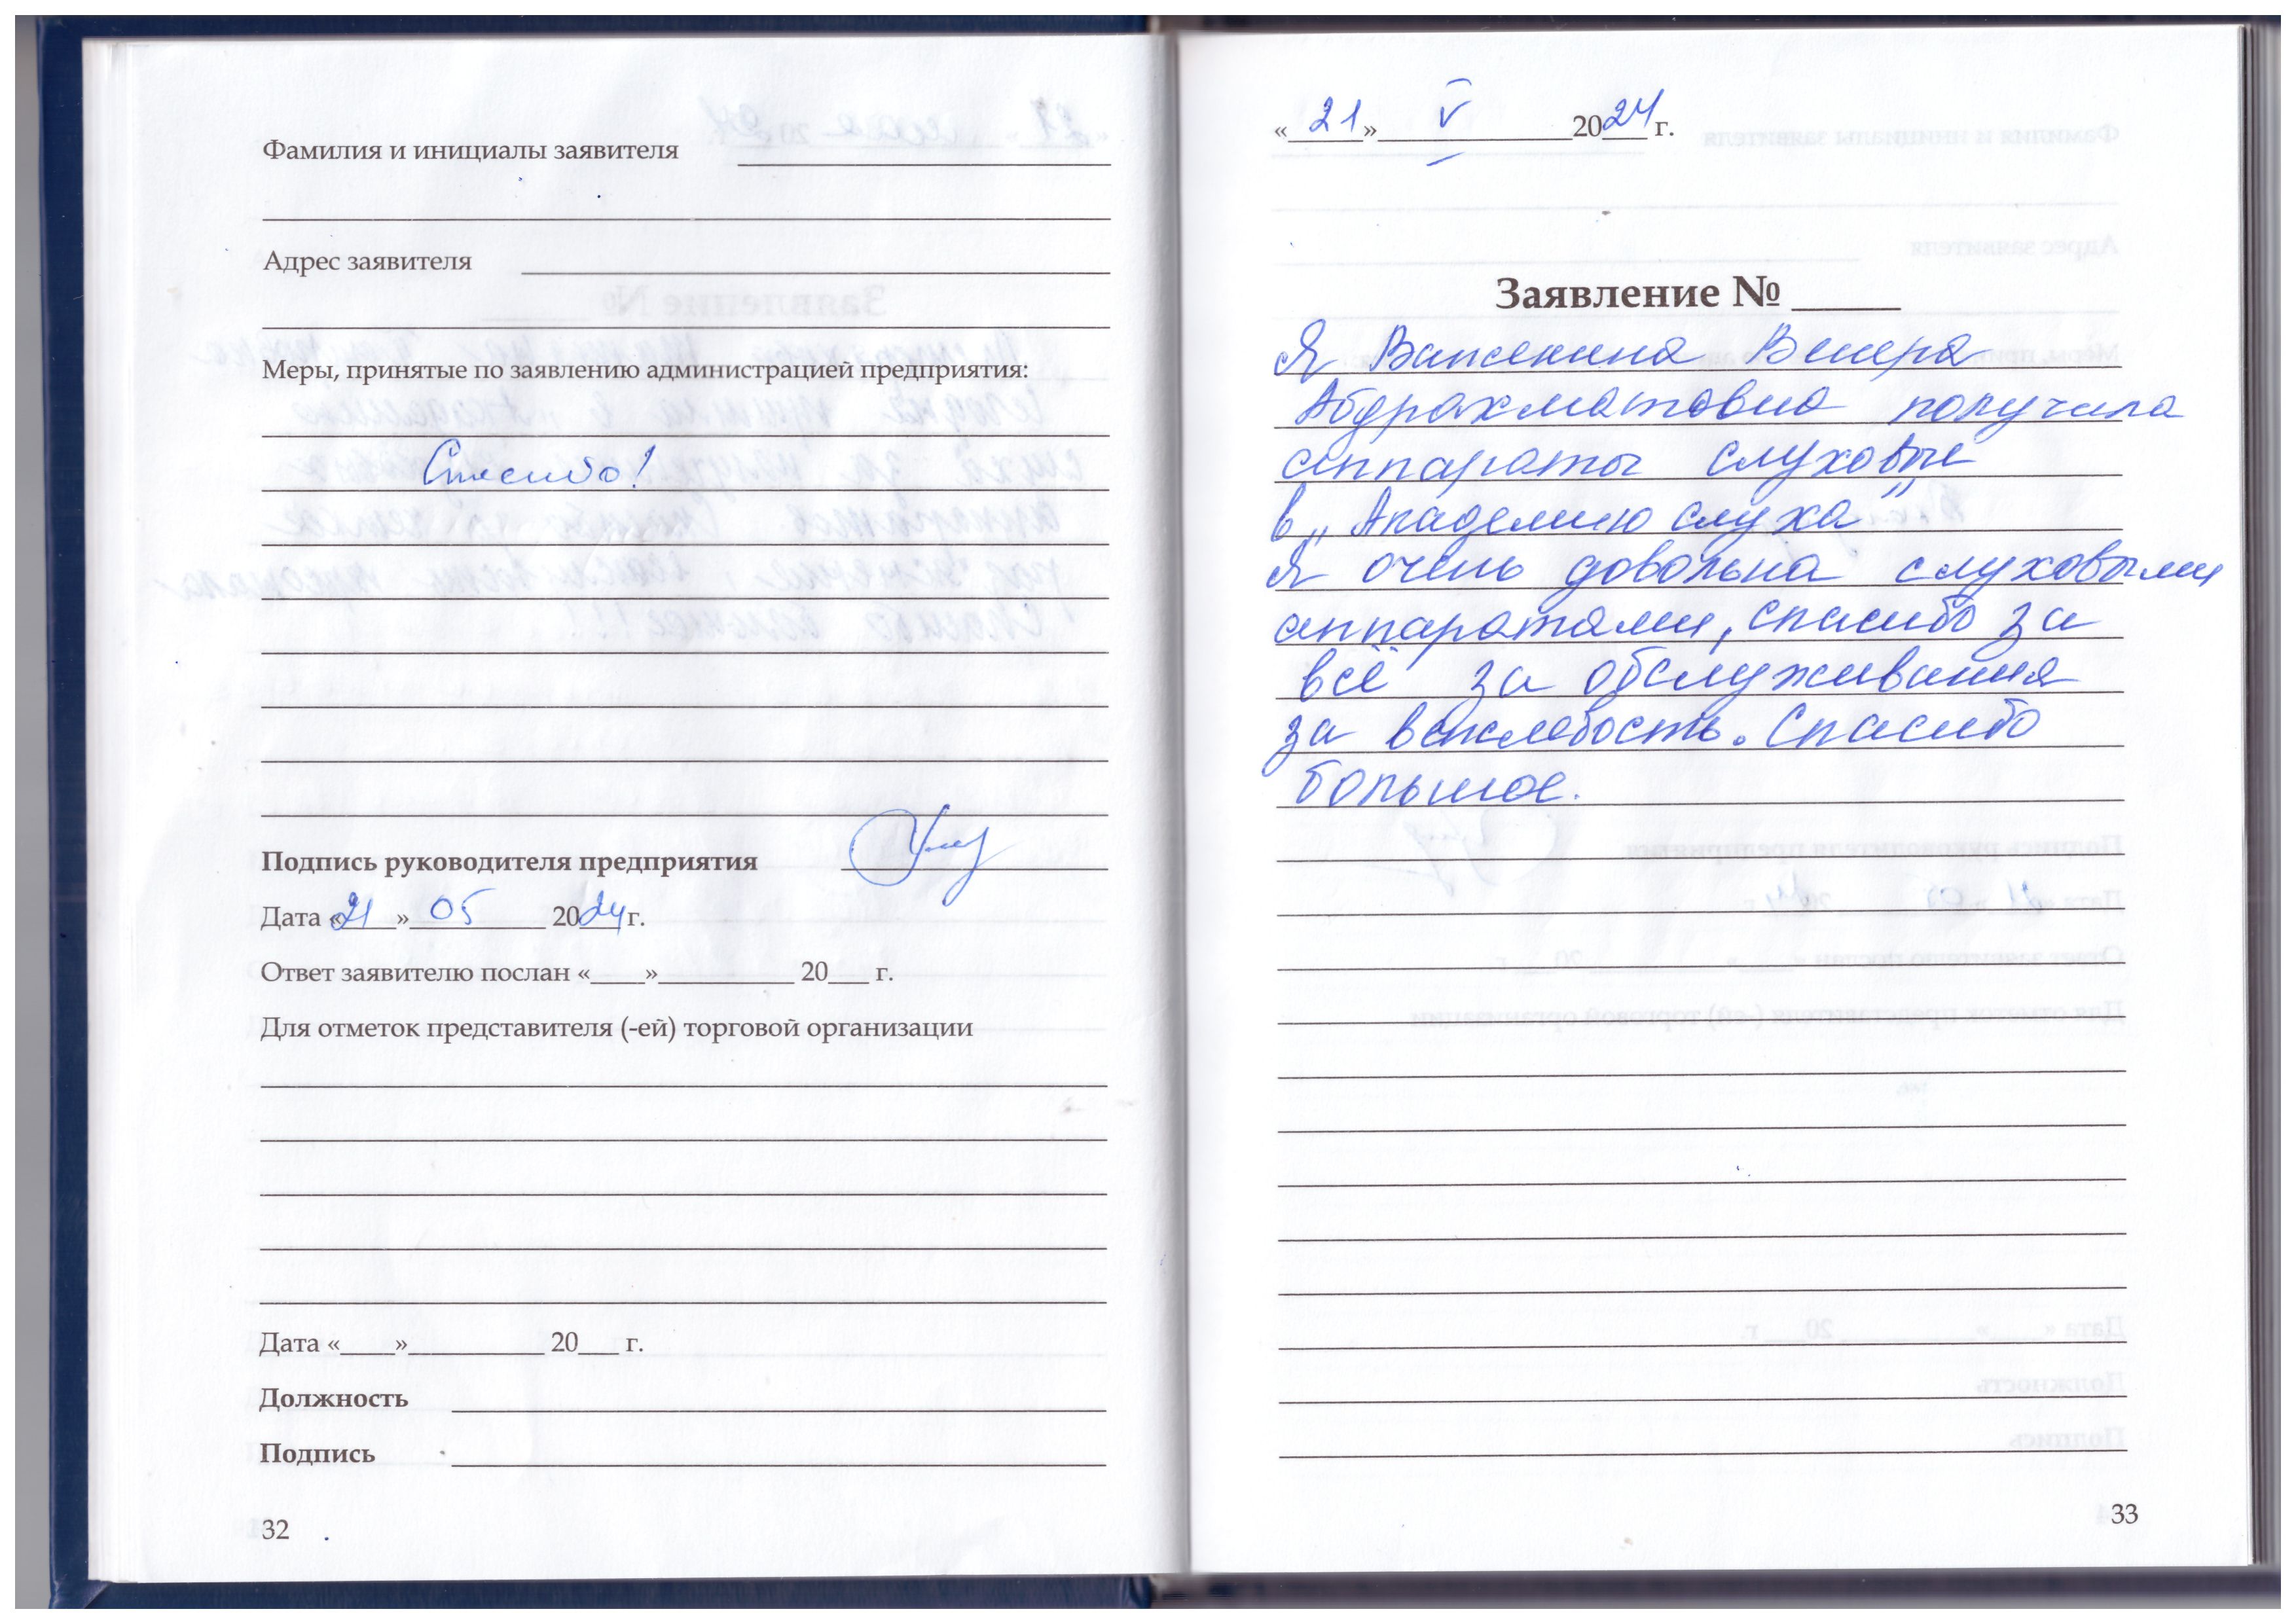 Фамилия и инициалы заявителя
Адрес заявителя
Меры, принятые по заявлению администрацией предприятия:
Спасибо!
Подпись руководителя предприятия
Дата «21» 05 2024 г.
Ответ заявителю послан «____»__________ 20___ г.
Для отметок представителя (-ей) торговой организации
Дата «____»__________ 20___ г.
Должность
Подпись
32
«21» V 2024 г.
Заявление № _____
Я Важенина Венера
Абдрахматовна получила
аппараты слуховые
в „Академию слуха"
Я очень довольна слуховыми
аппаратами, спасибо за
всё за обслуживания
за вежлевость. Спасибо
большое.
33